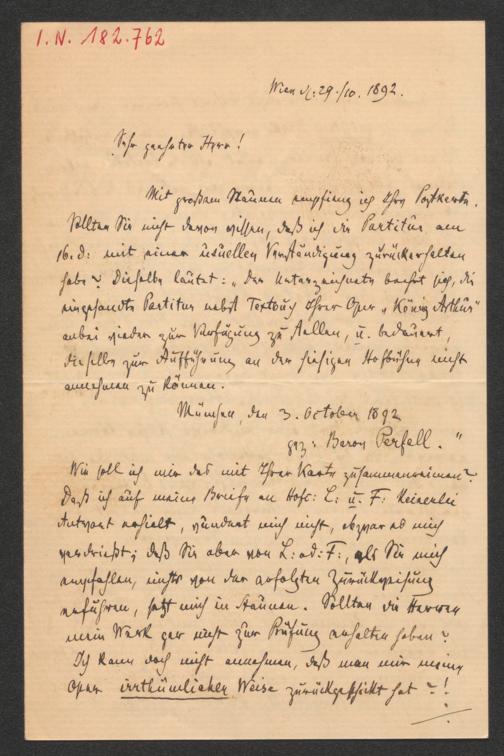 I.N. 182.762
Wien d: 29./10. 1892.
Sehr geehrter Herr!
Mit großem Staunen empfing ich Ihre Postkarte.
Sollten Sie nicht davon wissen, daß ich die Partitur am
16. d: mit einer Verständigung zurückerhalten
habe? Dieselbe lautet: „Der Unterzeichnete beehrt sich, die
eingesandte Partitur nebst Textbuch Ihrer Oper „König Arthur"
anbei wieder zur Verfügung zu stellen, u. bedauert,
dieselbe zur Aufführung an der hiesigen Hofbühne nicht
annehmen zu können.
München, den 3. October 1892
gez: Baron Perfall."
Wie soll ich mir das mit Ihrer Karte zusammenreimen?
Daß ich auf meine Briefe an Hofc: L: u. F: keinerlei
Antwort erhielt, wundert mich nicht, obzwar es mich
verdrießt; daß Sie aber von L: od: F:, als Sie mich
empfahlen, nichts von der erfolgten Zurückweisung
erfuhren, setzt mich in Staunen. Sollten die Herren
mein Werk gar nicht zur Prüfung erhalten haben?
Ich kann doch nicht annehmen, daß man mir meine
Oper irrthümlicher Weise zurückgeschickt hat?!